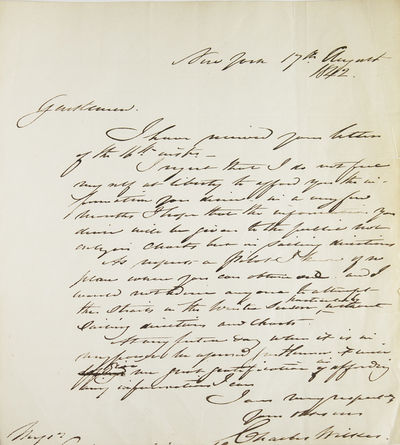 New York 17th August
1842.
Gentlemen.
I have received your letters
of the 16th inst. —
I regret that I do not feel
my self at liberty to afford you the in-
formation you desire in a very few
months I hope that the information you
desire will be given to the public not
only in Charts but in sailing directions
As respects a Pilot I know of no
place where you can obtain one and I
would not advise anyone to attempt
the Straits in the Winter Season, particularly without
Sailing directions and Charts.
At any future day when it is in
my power
me great gratification in affording
any information I can
I am very respect
Charles Wilkes